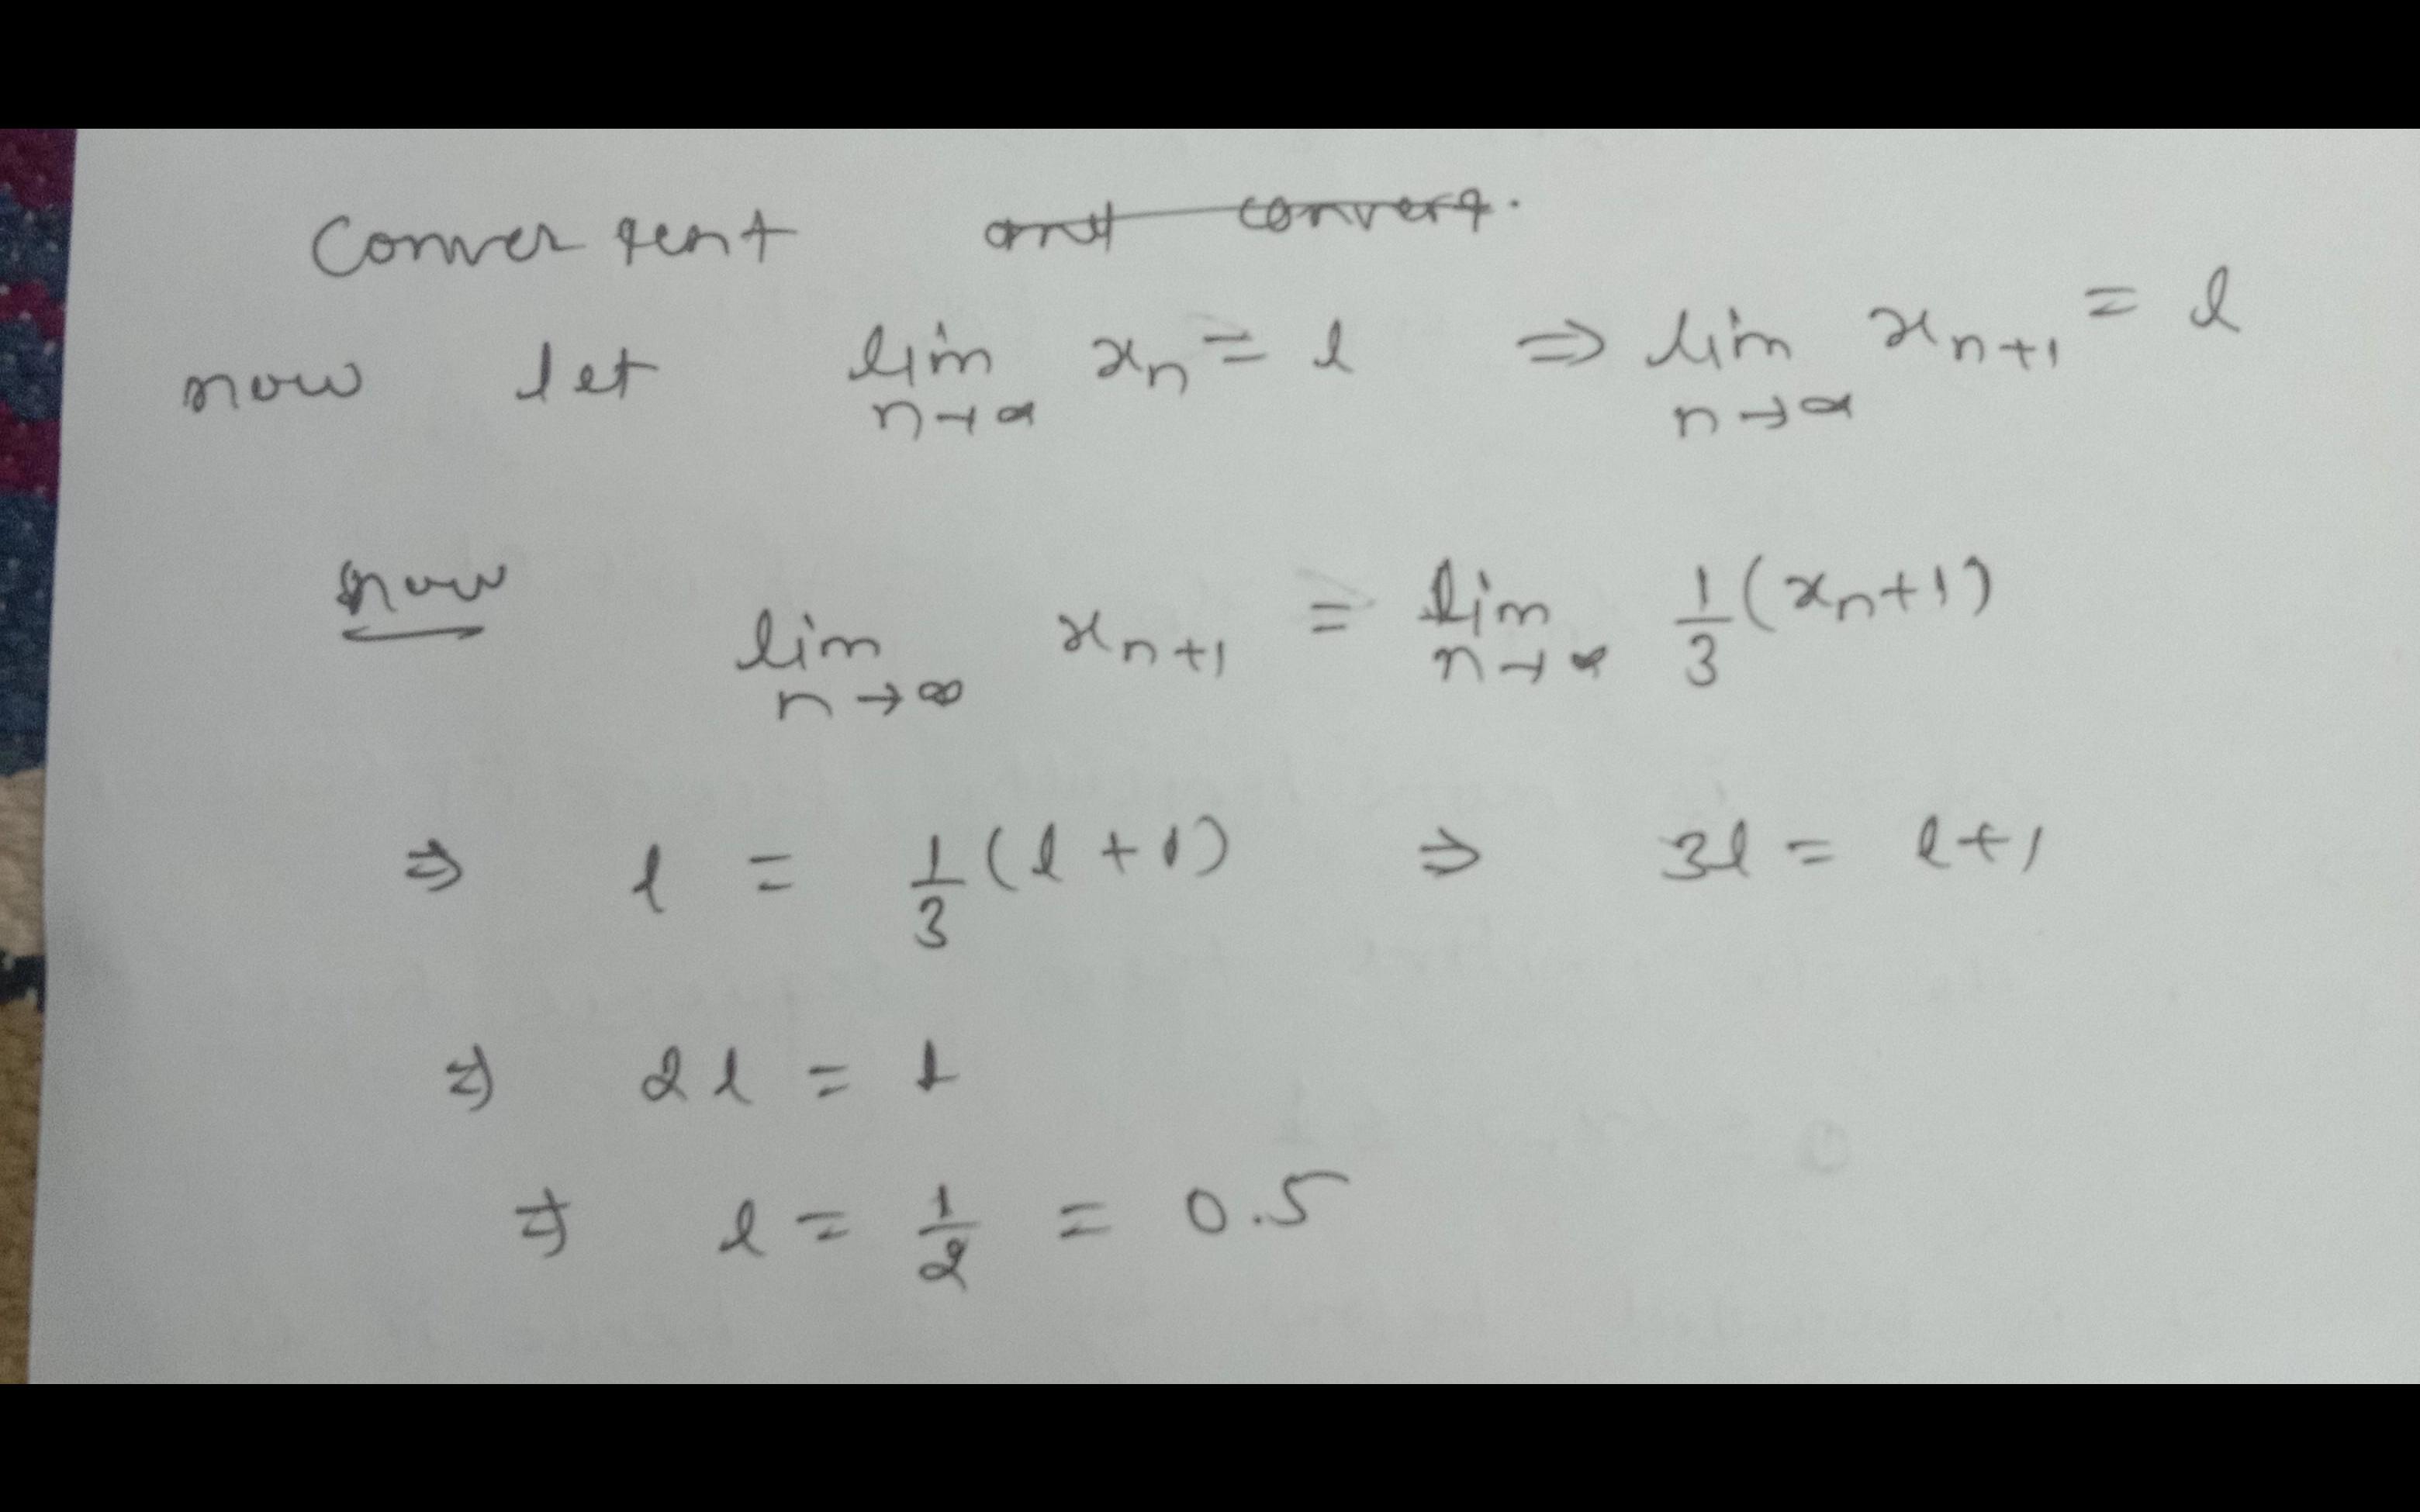 Convergent and converg.
now let lim n→∞ xₙ = l ⇒ lim n→∞ xₙ₊₁ = l
now lim n→∞ xₙ₊₁ = lim n→∞ 1/3 (xₙ+1)
⇒ l = 1/3 (l + 1) ⇒ 3l = l+1
⇒ 2l = 1
⇒ l = 1/2 = 0.5